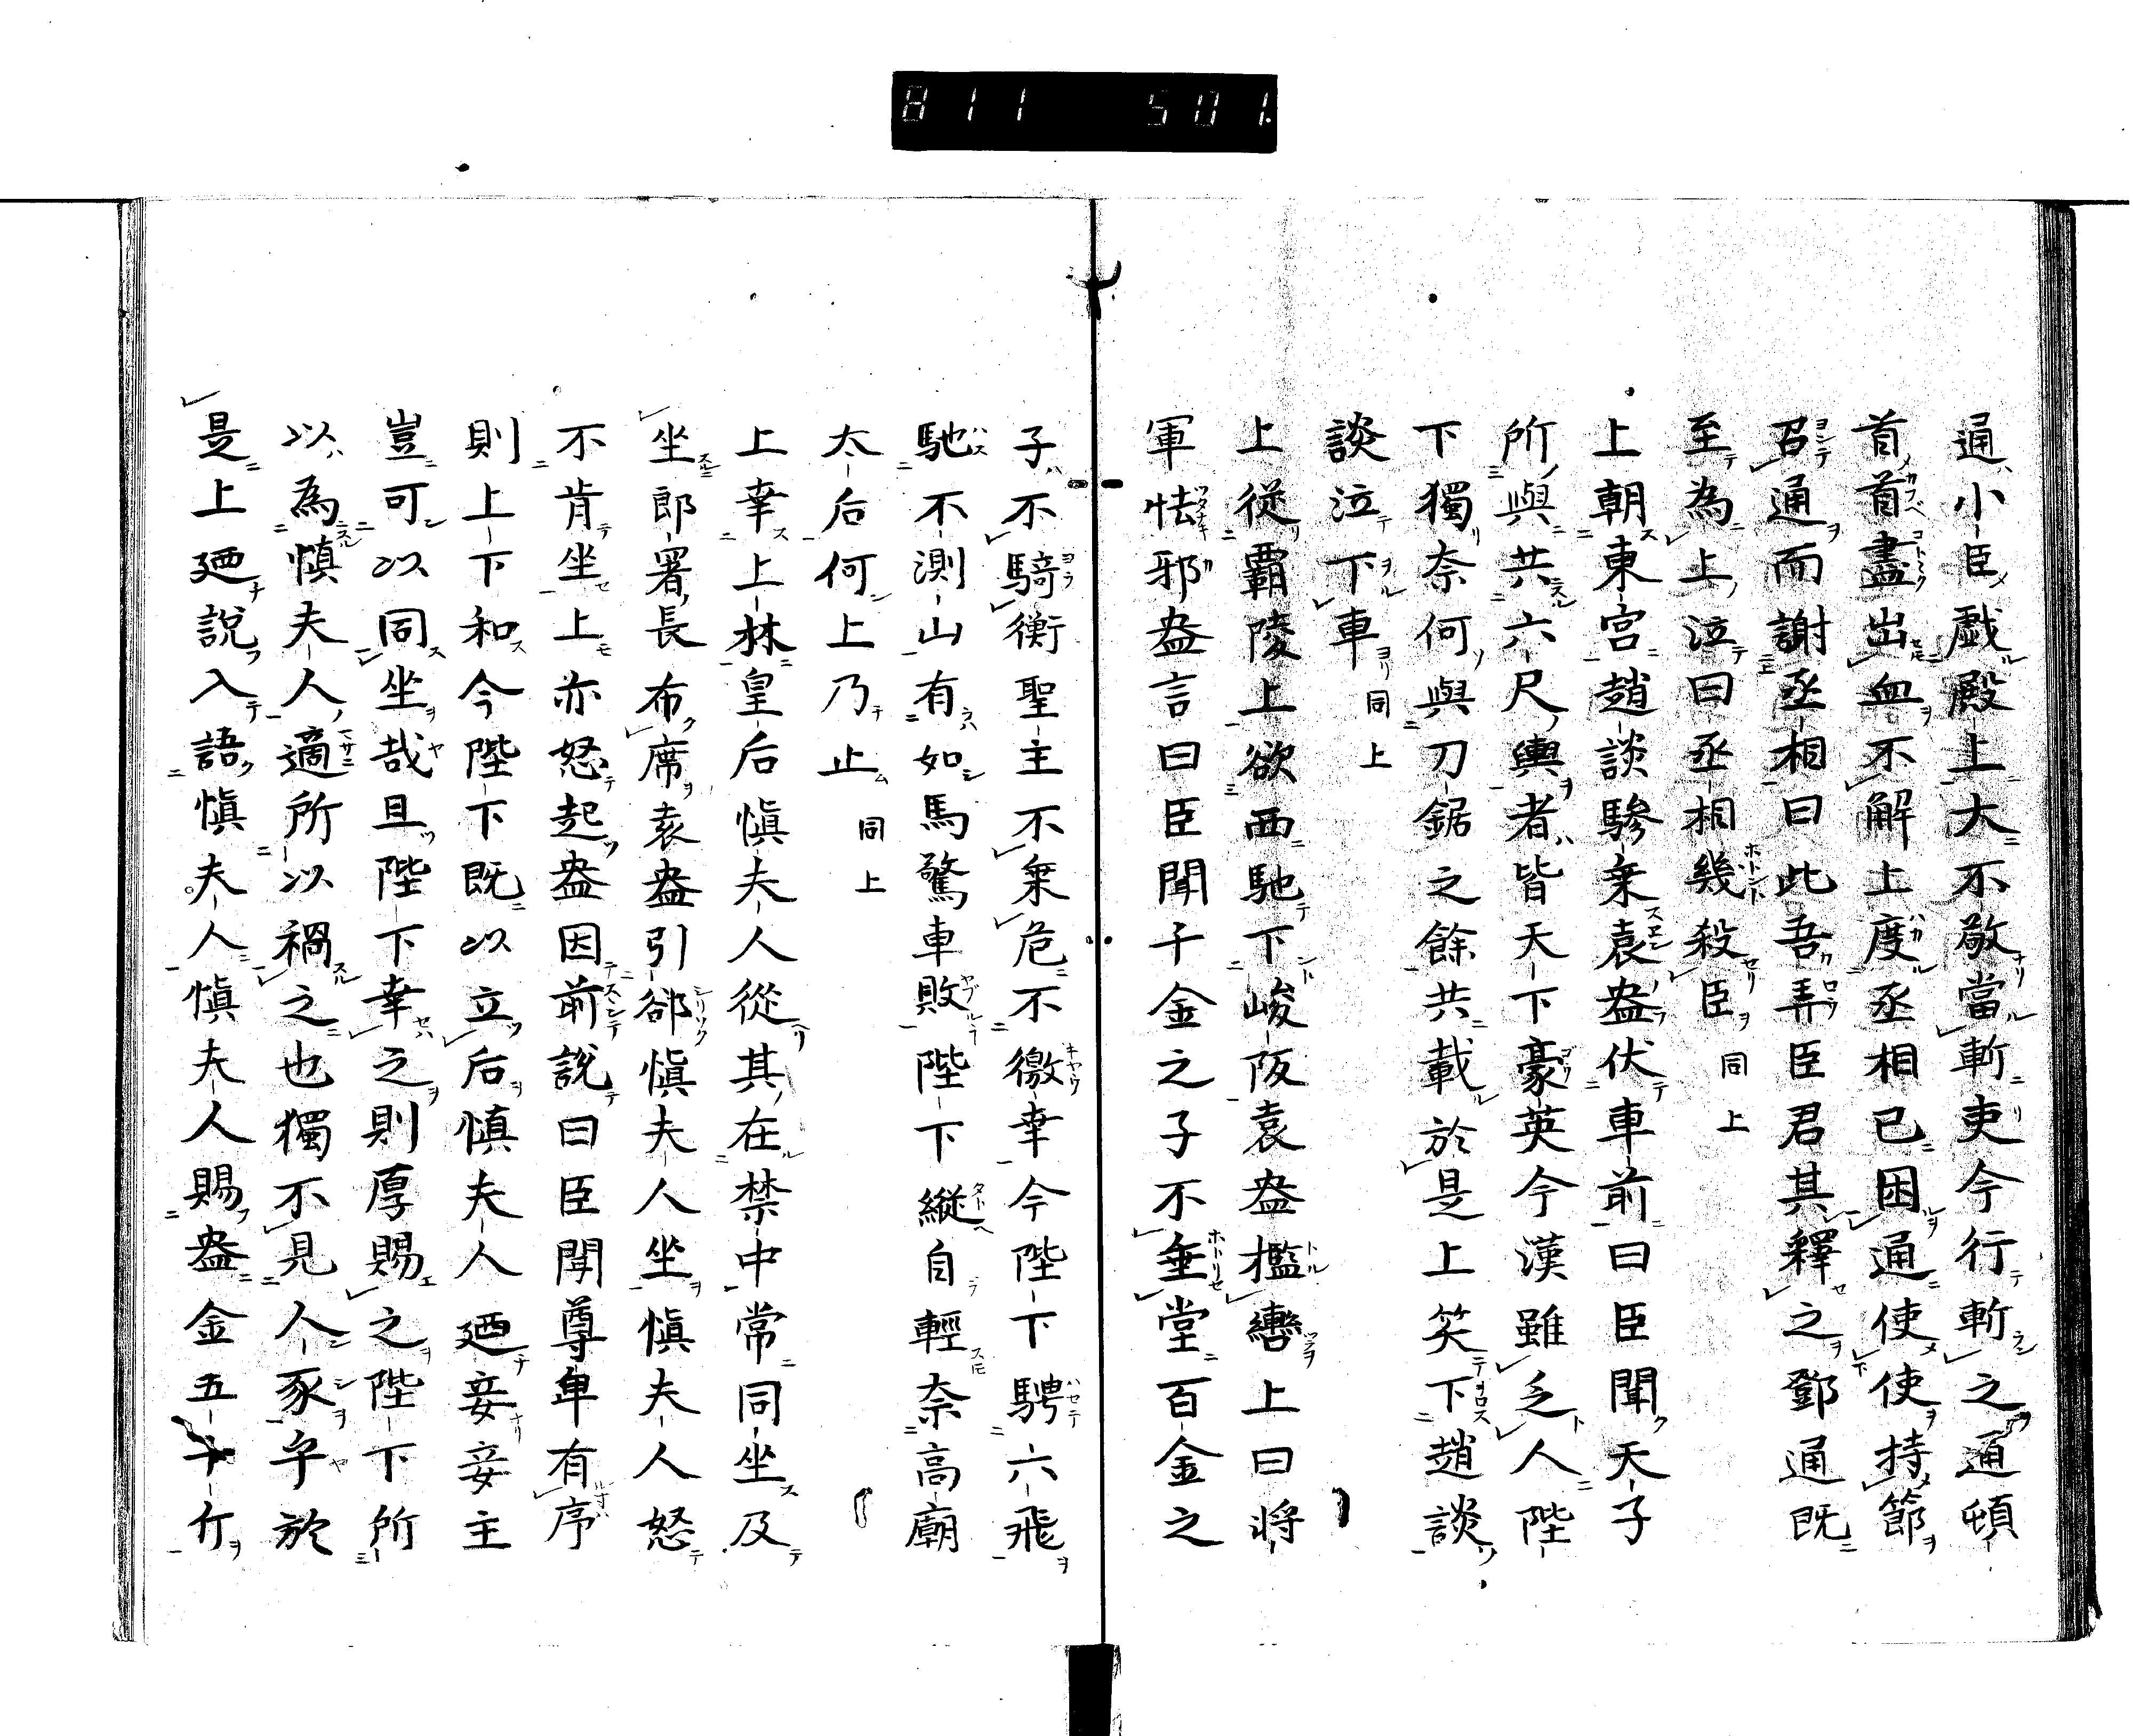 811 501.
通小臣戯殿上大不敬當斬吏今行斬之通頓
首首盡出血不解上度丞相已困通使使持節
召通而謝丞相曰此吾弄臣君其釋之鄧通既
至為上泣曰丞相幾殺臣 同上
上朝東宮趙談驂乗袁盎伏車前曰臣聞天子
所與共六尺輿者皆天下豪英今漢雖乏人陛
下獨奈何與刀鋸之餘共載於是上笑下趙談
談泣下車 同上
上従覇陵上欲西馳下峻阪袁盎檻轡上曰将
軍怯邪盎言曰臣聞千金之子不垂堂百金之
子不騎衡聖主不乗危不徼幸今陛下騁六飛
馳不測山有如馬驚車敗陛下縦自輕奈高廟
太后何上乃止 同上
上幸上林皇后慎夫人從其在禁中常同坐及
坐郎署長布席袁盎引郤慎夫人坐慎夫人怒
不肯坐上亦怒起盎因前説曰臣聞尊卑有序
則上下和今陛下既以立后慎夫人廼妾妾主
豈可以同坐哉且陛下幸之則厚賜之陛下所
以為慎夫人適所以禍之也獨不見人豕乎於
是上廼説入語慎夫人慎夫人賜盎金五十斤